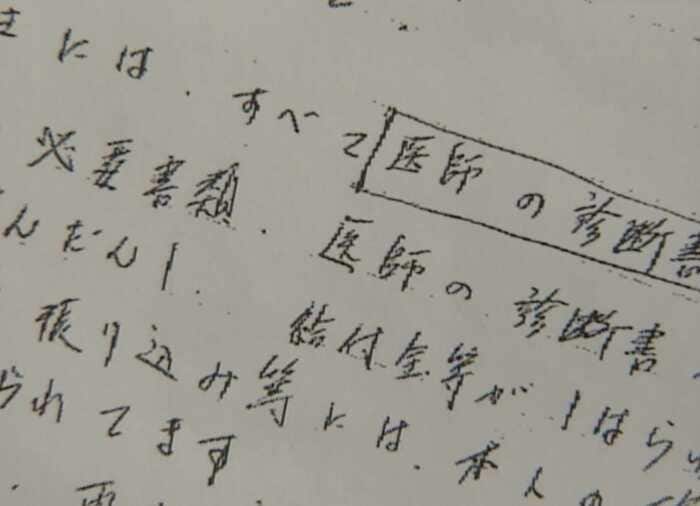 には、すべて医師の診断書
必要書類、医師の診断書、
んだん 給付金等が はら
振り込み等には、本人の
られてます